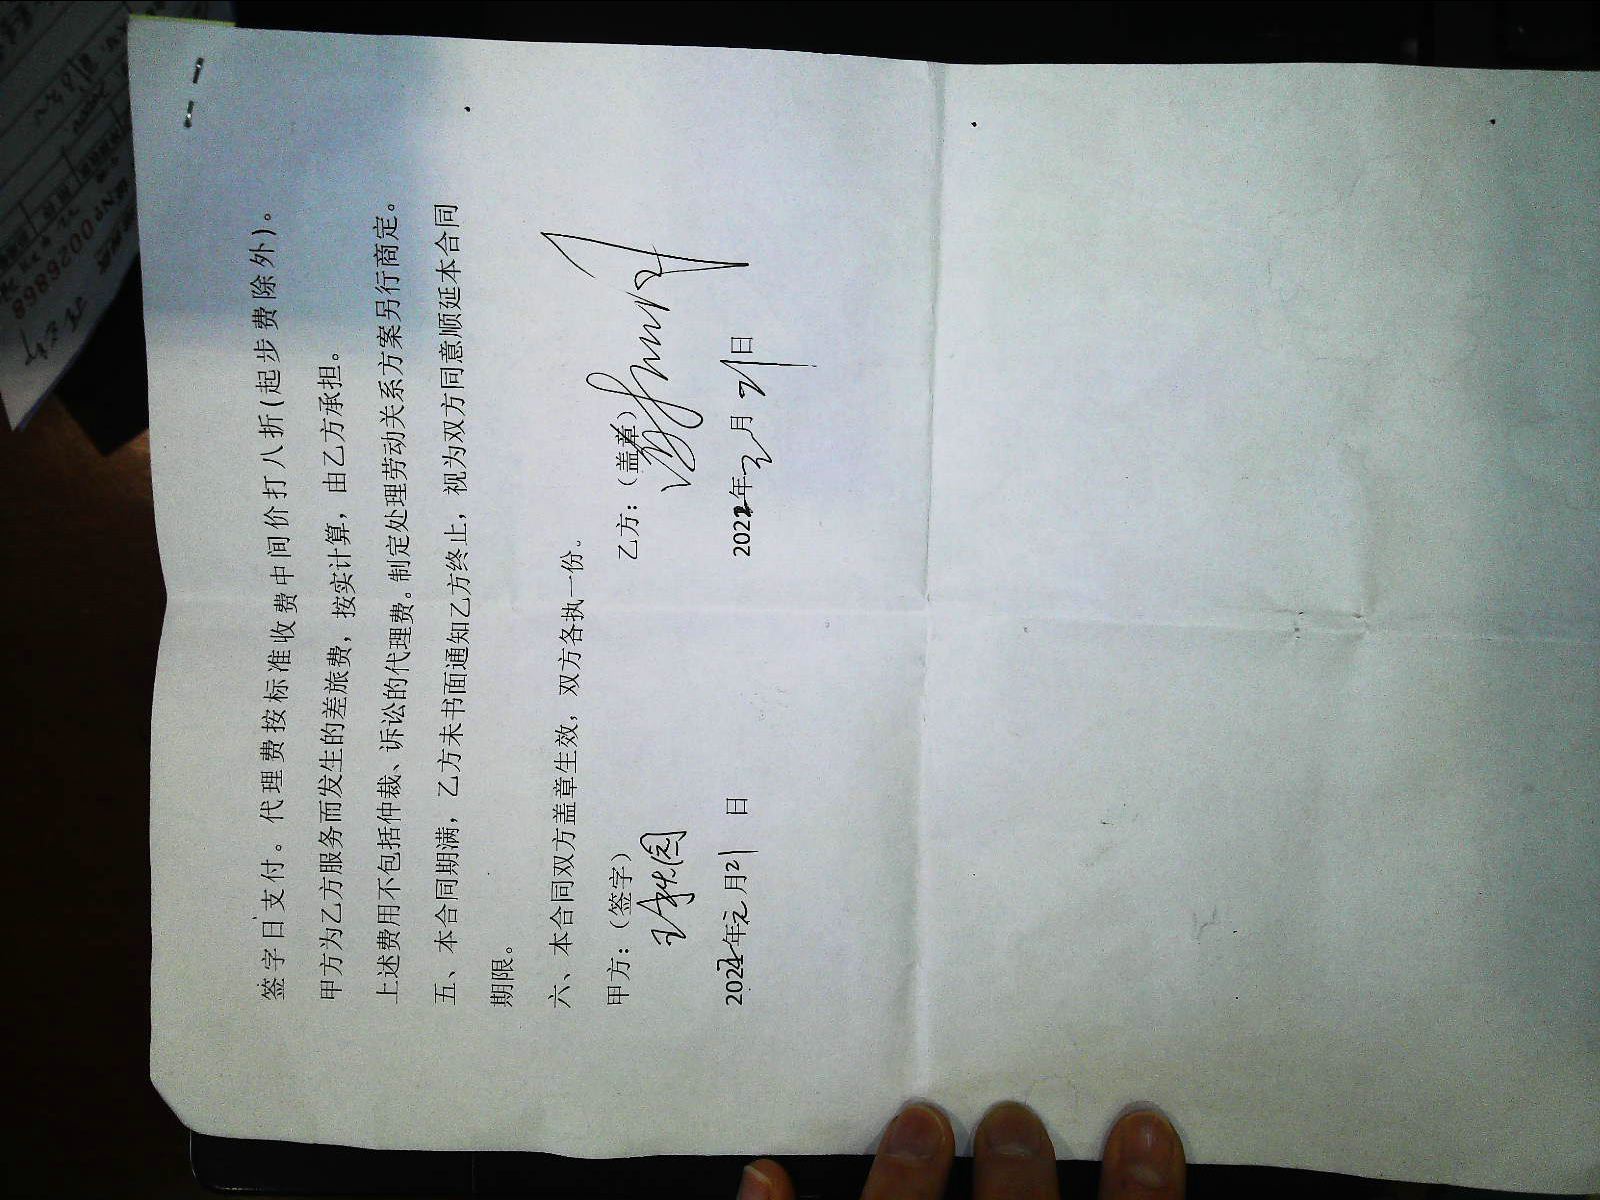 签字日支付。代理费按标准收费中间价打八折(起步费除外)。
甲方为乙方服务而发生的差旅费，按实计算，由乙方承担。
上述费用不包括仲裁、诉讼的代理费。制定处理劳动关系方案另行商定。
五、本合同期满，乙方未书面通知乙方终止，视为双方同意顺延本合同
期限。
六、本合同双方盖章生效，双方各执一份。
甲方：（签字） 乙方：（盖章）
年元月21日 2022年元月21日
0026868